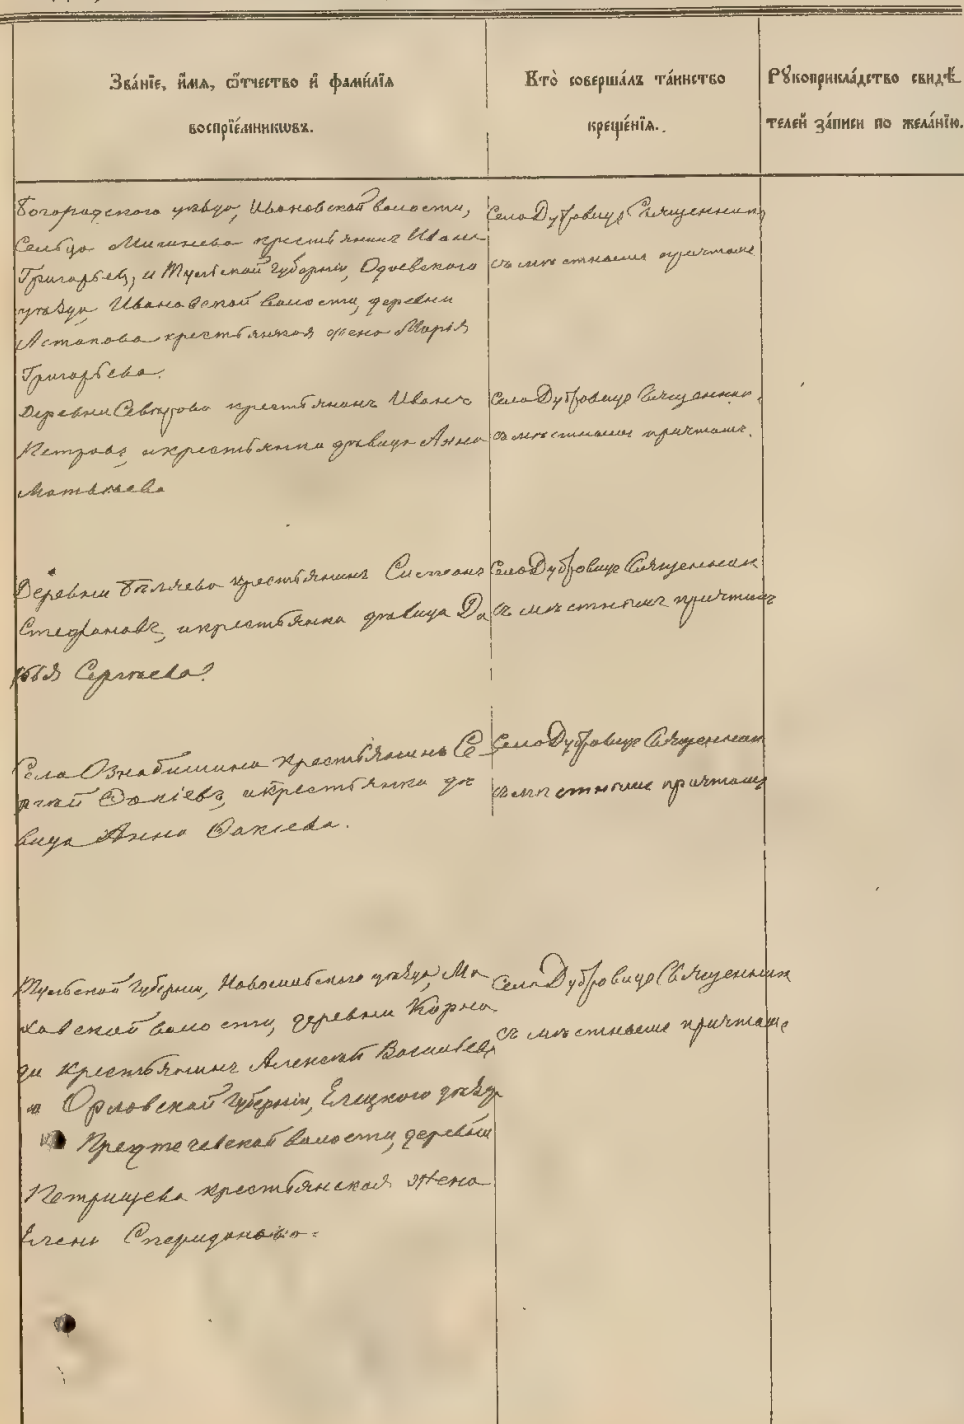 Зва́нїе, и҆́мѧ, ѻ҆́тчество и҆ фами́лїѧ
воспрїе́мникѡвъ.
Кто̀ соверша́лъ та́инство
креще́нїѧ.
Рꙋкоприкла́дство свидѣ́-
телей за́писи по жела́нїю.
Богородского уѣзда, Ивановской волости,
Сельца крестьянинъ Иванъ
Григорьевъ, и Тульской губерніи, Одоевского
уѣзда, Ивановской волости, деревни
Астапова крестьянская жена Марія
Григорьева.
Села Дубровицъ Священникъ
съ мѣстнымъ причтомъ
Деревни крестьянинъ Иванъ
Петровъ, и крестьянка дѣвица Анна
Матвѣева
Села Дубровицъ Священникъ
съ мѣстнымъ причтомъ.
Деревни Бѣляева крестьянинъ
Стефановъ, и крестьянка дѣвица Да
рья Сергѣева.
Села Дубровицъ Священник
съ мѣстнымъ причтомъ
Села Ознобишина крестьянинъ Се
ргѣй Фокіевъ, и крестьянка дѣ
вица Анна Фокіева.
Села Дубровицъ Священник
съ мѣстнымъ причтомъ
Тульской губерніи, Новосильского уѣзда, Мо
ховской волости, деревни
крестьянинъ Алексѣй Васильевъ
и Орловской губерніи, Елецкого уѣзд
Предтечевской волости, деревни
Петрищева крестьянская жена
Елена Спиридонова.
Села Дубровицъ Священник
съ мѣстнымъ причтомъ